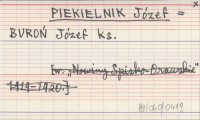 PIEKIELNIK Józef =
BUROŃ Józef Ks.
[w. „Nowiny Spisko-Orawskie"
1919-1920.]